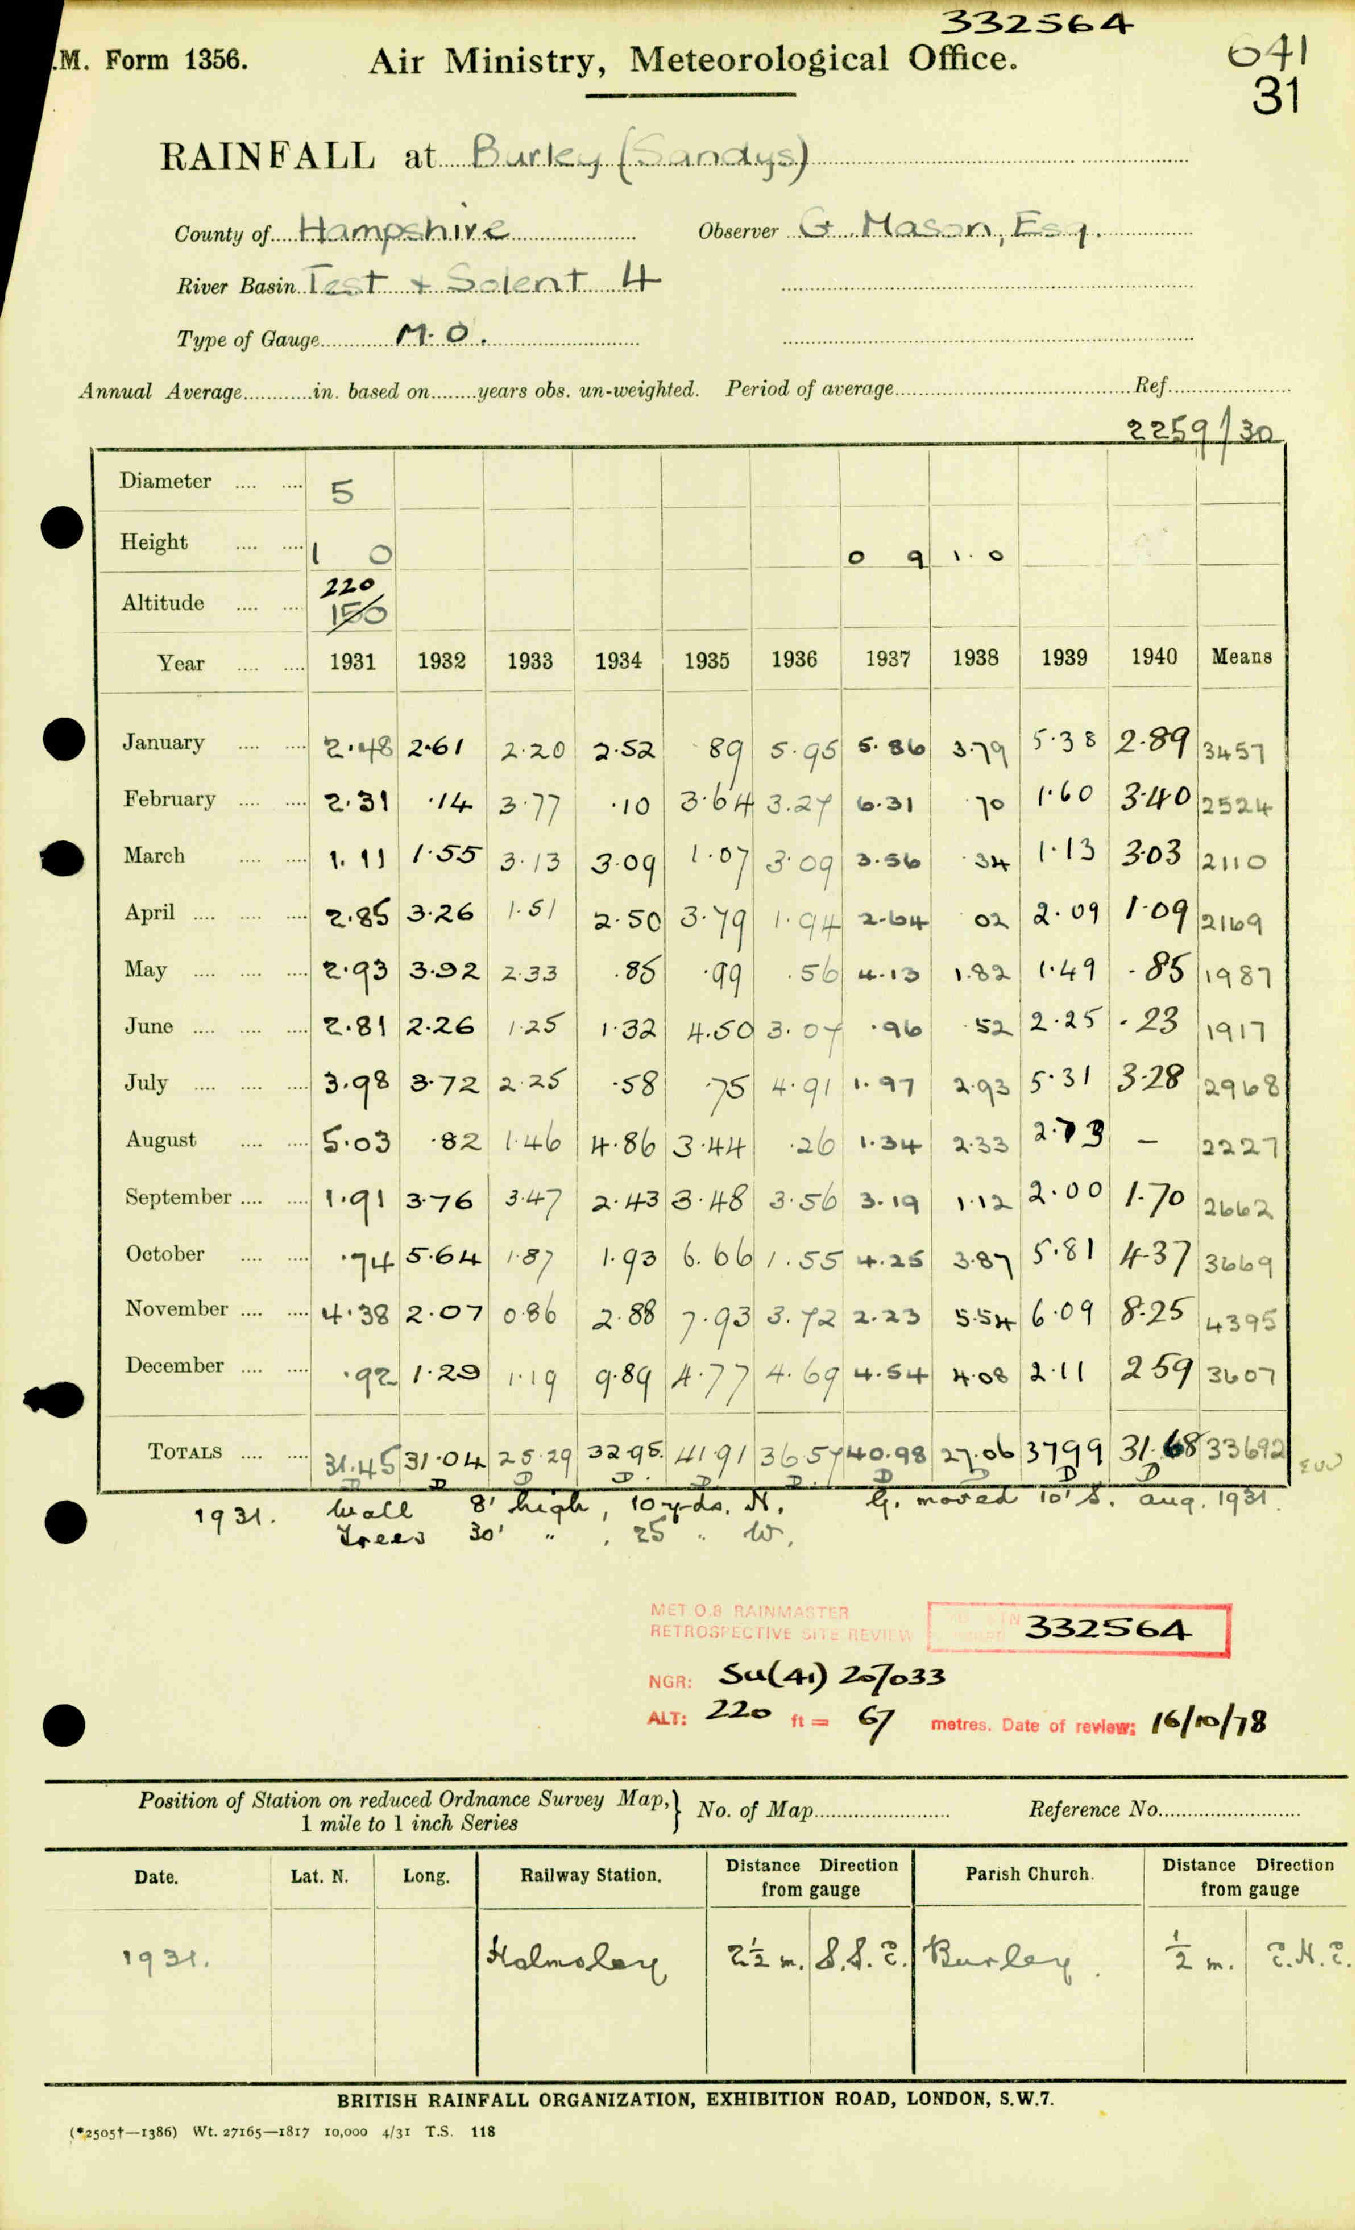 332564
.M. Form 1356.
Air Ministry, Meteorological Office.
641
31
RAINFALL at Burley (Sandys)
County of Hampshire Observer G. Mason, Esq.
River Basin Test + Solent 4
Type of Gauge M.O.
Annual Average in. based on years obs. un-weighted. Period of average Ref.
2259/30
Diameter 5
Height 1 0 0 9 1.0
220
Altitude 150
Year 1931 1932 1933 1934 1935 1936 1937 1938 1939 1940 Means
January 2.48 2.61 2.20 2.52 89 5.95 5.86 3.79 5.38 2.89 3457
February 2.31 .14 3.77 .10 3.64 3.27 6.31 70 1.60 3.40 2524
March 1.11 1.55 3.13 3.09 1.07 3.09 3.56 .34 1.13 3.03 2110
April 2.85 3.26 1.51 2.50 3.79 1.94 2.64 02 2.09 1.09 2169
May 2.93 3.92 2.33 .85 .99 .56 4.13 1.82 1.49 .85 1987
June 2.81 2.26 1.25 1.32 4.50 3.07 .96 .52 2.25 .23 1917
July 3.98 3.72 2.25 .58 .75 4.91 1.97 2.93 5.31 3.28 2968
August 5.03 .82 1.46 4.86 3.44 .26 1.34 2.33 2.73 — 2227
September 1.91 3.76 3.47 2.43 3.48 3.56 3.19 1.12 2.00 1.70 2662
October .74 5.64 1.87 1.93 6.66 1.55 4.25 3.87 5.81 4.37 3669
November 4.38 2.07 0.86 2.88 7.93 3.72 2.23 5.54 6.09 8.25 4395
December .92 1.29 1.19 9.89 4.77 4.69 4.54 4.08 2.11 259 3607
TOTALS 31.45 31.04 25.29 32.95. 41.91 36.57 40.98 27.06 3799 31.68 33692
D D D D. D D. D D D D
1931. Wall 8' high, 10 yds. N. G. moved 10' S. Aug. 1931.
Trees 30' " , 25 " W.
MET O.8 RAINMASTER
RETROSPECTIVE SITE REVIEW 332564
NGR: SU(41) 207033
ALT: 220 ft = 67 metres. Date of review: 16/10/78
Position of Station on reduced Ordnance Survey Map,} No. of Map Reference No.
1 mile to 1 inch Series
Date. Lat. N. Long. Railway Station. Distance Direction Parish Church. Distance Direction
from gauge from gauge
1931. Holmsley 2½ m. S.S.E. Burley. ½ m. E.N.E.
BRITISH RAINFALL ORGANIZATION, EXHIBITION ROAD, LONDON, S.W.7.
(*2505†—1386) Wt. 27165—1817 10,000 4/31 T.S. 118